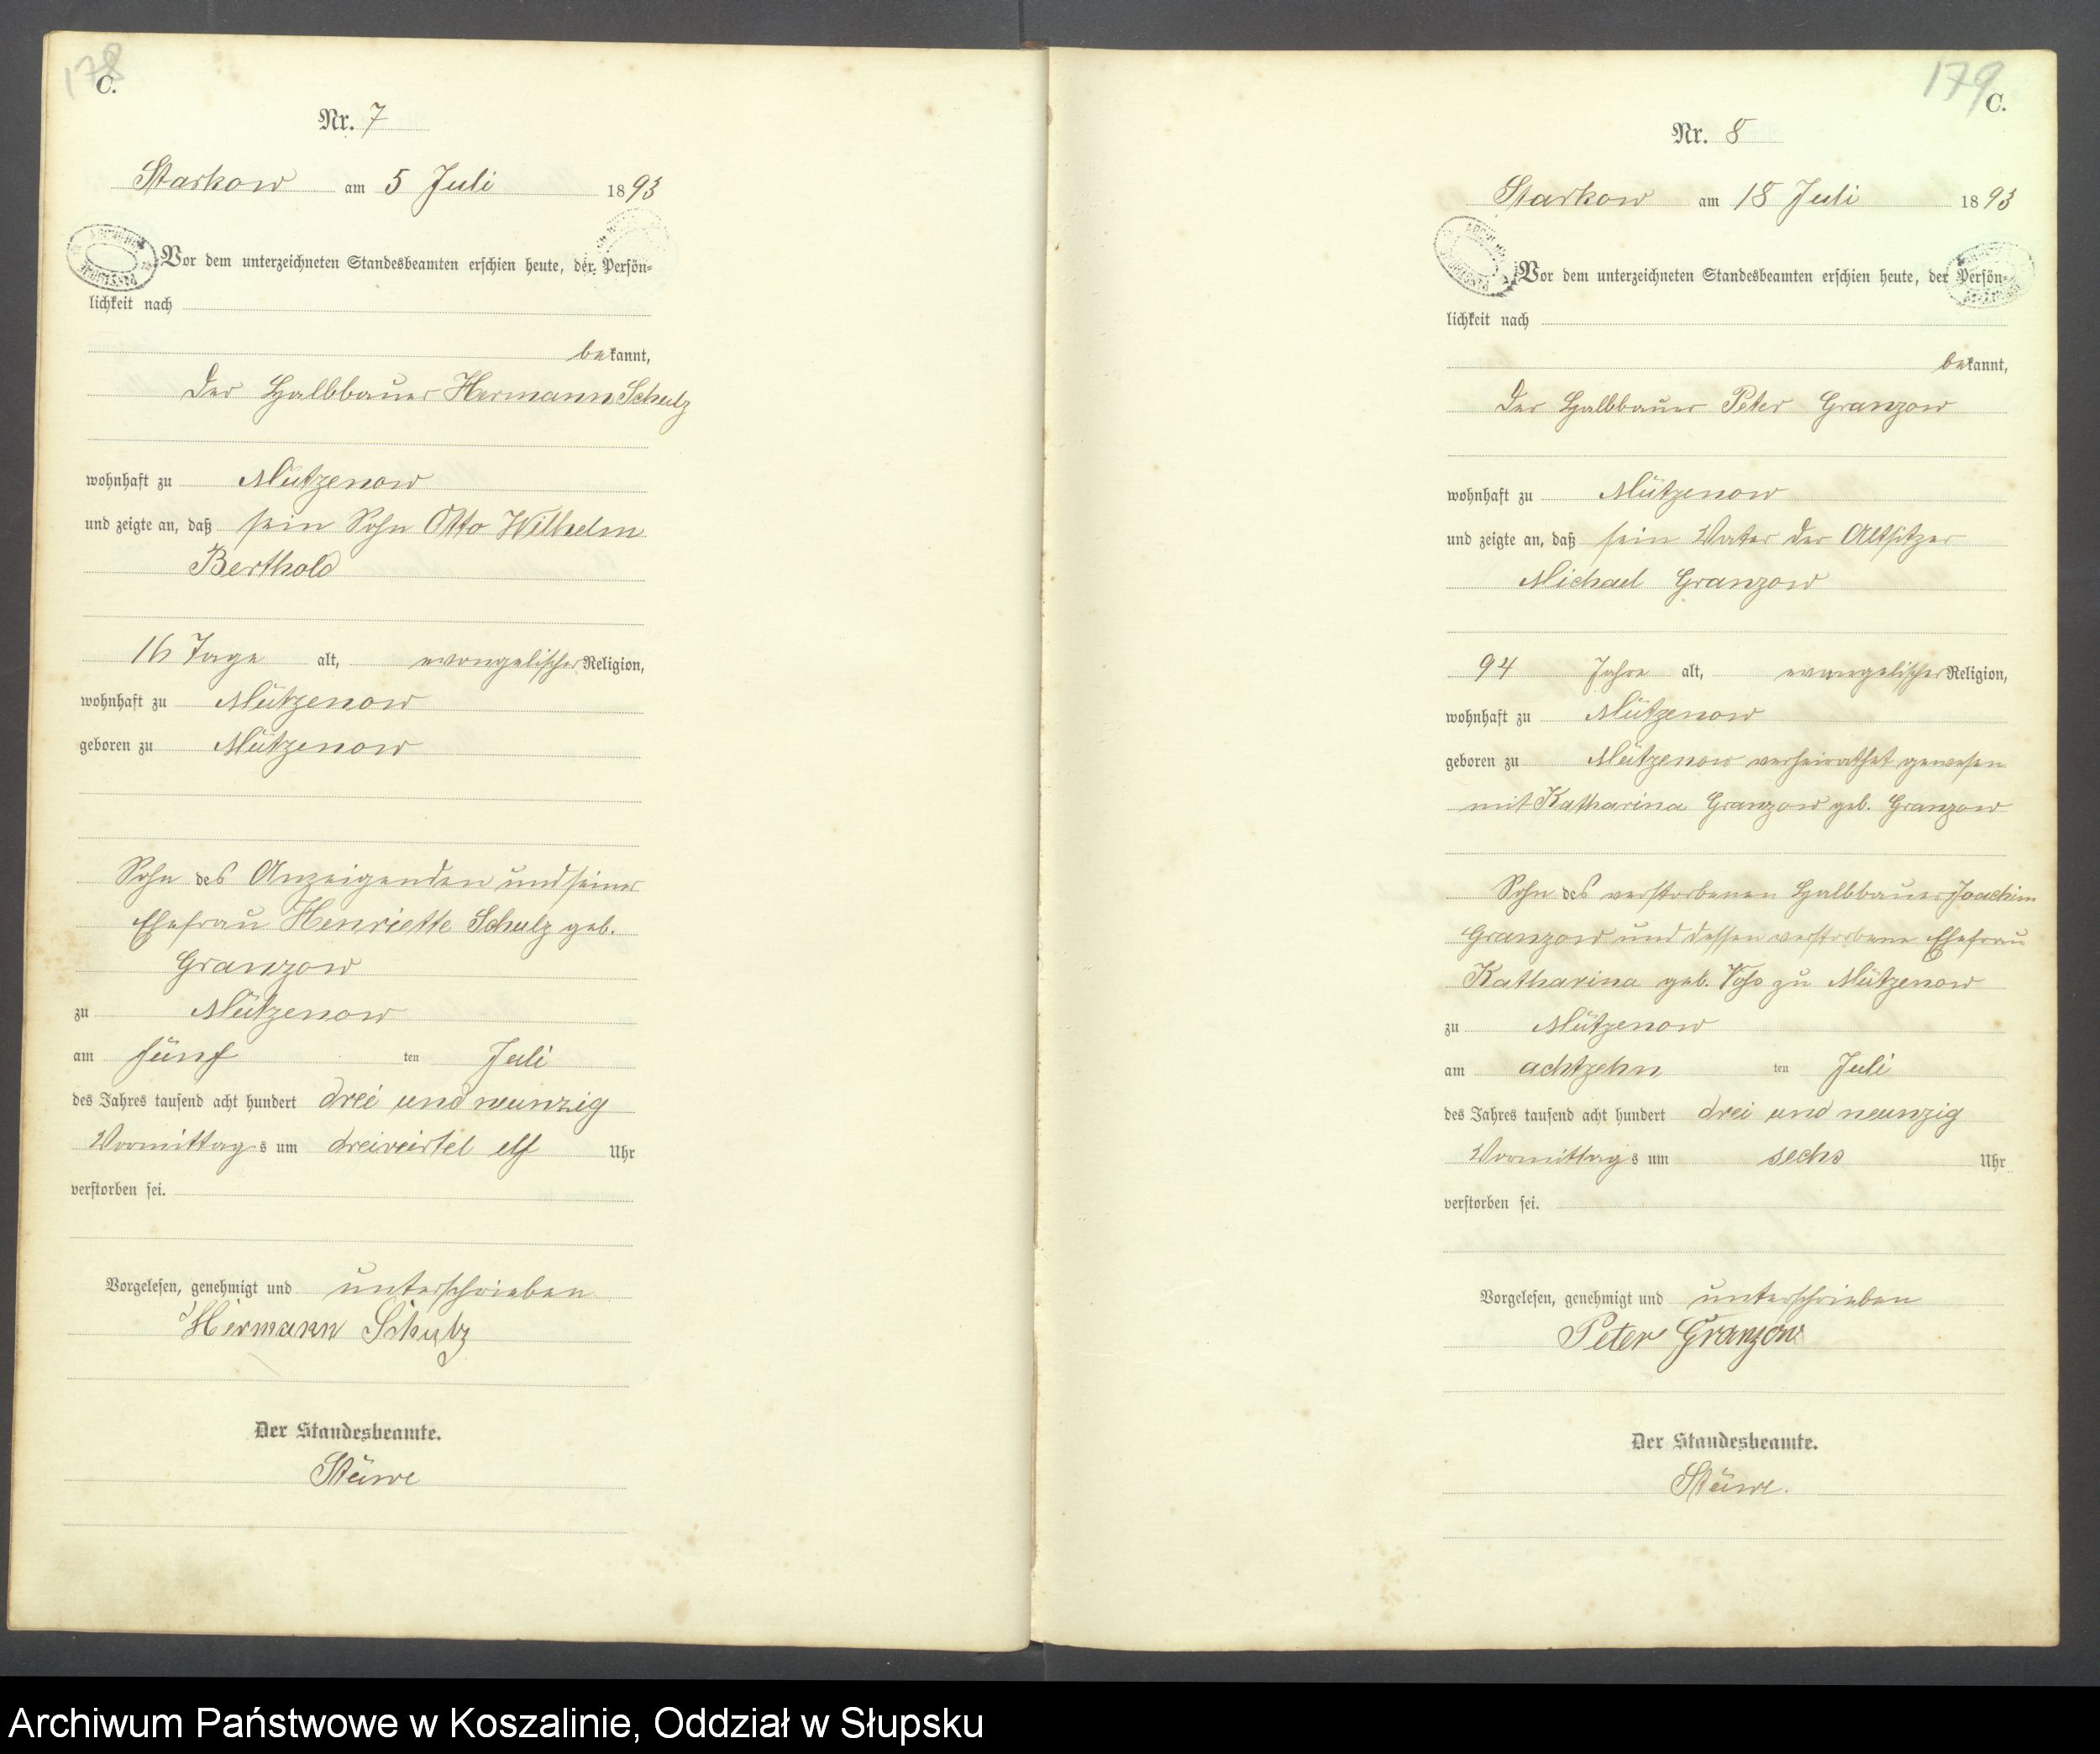 178
C.
Nr. 7
Starkow am 5 Juli 1893
Vor dem unterzeichneten Standesbeamten erschien heute, der Persön-
lichkeit nach
bekannt,
der Halbbauer Hermann Schulz
wohnhaft zu Mützenow
und zeigte an, daß sein Sohn Otto Wilhelm
Berthold
16 Tage alt, evangelischer Religion,
wohnhaft zu Mützenow
geboren zu Mützenow
Sohn des Anzeigenden und seiner
Ehefrau Henriette Schulz geb.
Granzow
zu Mützenow
am fünf ten Juli
des Jahres tausend acht hundert drei und neunzig
Vormittags um dreiveirtel elf Uhr
verstorben sei.
Vorgelesen, genehmigt und unterschrieben
Hermann Schulz
Der Standesbeamte.
Stüwe
179
C.
Nr. 8
Starkow am 18 Juli 1893
Vor dem unterzeichneten Standesbeamten erschien heute, der Persön-
lichkeit nach
bekannt,
der Halbbauer Peter Granzow
wohnhaft zu Mützenow
und zeigte an, daß sein Vater der Altsitzer
Michael Granzow
94 Jahre alt, evangelischer Religion,
wohnhaft zu Mützenow
geboren zu Mützenow verheirathet gewesen
mit Katharina Granzow geb. Granzow
Sohn des verstorbenen Halbbauer Joachim
Granzow und dessen verstorbene Ehefrau
Katharina geb. Voss zu Mützenow
zu Mützenow
am achtzehn ten Juli
des Jahres tausend acht hundert drei und neunzig
Vormittags um sechs Uhr
verstorben sei.
Vorgelesen, genehmigt und unterschrieben
Peter Granzow
Der Standesbeamte.
Stüwe.
Archiwum Państwowe w Koszalinie, Oddział w Słupsku